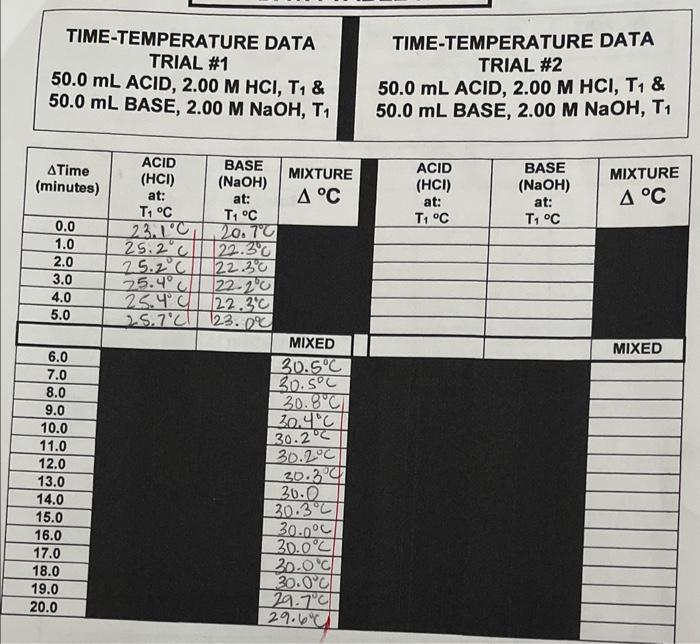 TIME-TEMPERATURE DATA
TRIAL #1
50.0 mL ACID, 2.00 M HCl, T₁ &
50.0 mL BASE, 2.00 M NaOH, T₁
TIME-TEMPERATURE DATA
TRIAL #2
50.0 mL ACID, 2.00 M HCl, T₁ &
50.0 mL BASE, 2.00 M NaOH, T₁
ΔTime (minutes) ACID (HCl) at: T₁ ºC BASE (NaOH) at: T₁ ºC MIXTURE Δ ºC ACID (HCl) at: T₁ ºC BASE (NaOH) at: T₁ ºC MIXTURE Δ ºC
0.0 23.1°C 20.7°C
1.0 25.2°C 22.3°C
2.0 25.2°C 22.3°C
3.0 25.4°C 22.2°C
4.0 25.4°C 22.3°C
5.0 25.7°C 23.0°C
MIXED MIXED
6.0 30.5°C
7.0 30.5°C
8.0 30.8°C
9.0 30.4°C
10.0 30.2°C
11.0 30.2°C
12.0 30.3°C
13.0 30.0
14.0 30.3°C
15.0 30.0°C
16.0 30.0°C
17.0 30.0°C
18.0 30.0°C
19.0 29.7°C
20.0 29.6°C